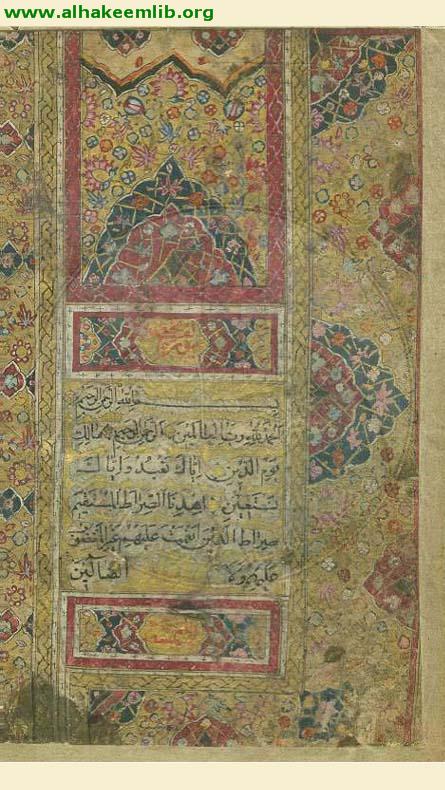 www.alhakeemlib.org
بسم الله الرحمن الرحيم
الحمد لله رب العالمين الرحمن الرحيم مالك
يوم الدين إياك نعبد وإياك
نستعين اهدنا الصراط المستقيم
صراط الذين أنعمت عليهم غير المغضوب
عليهم ولا الضالين